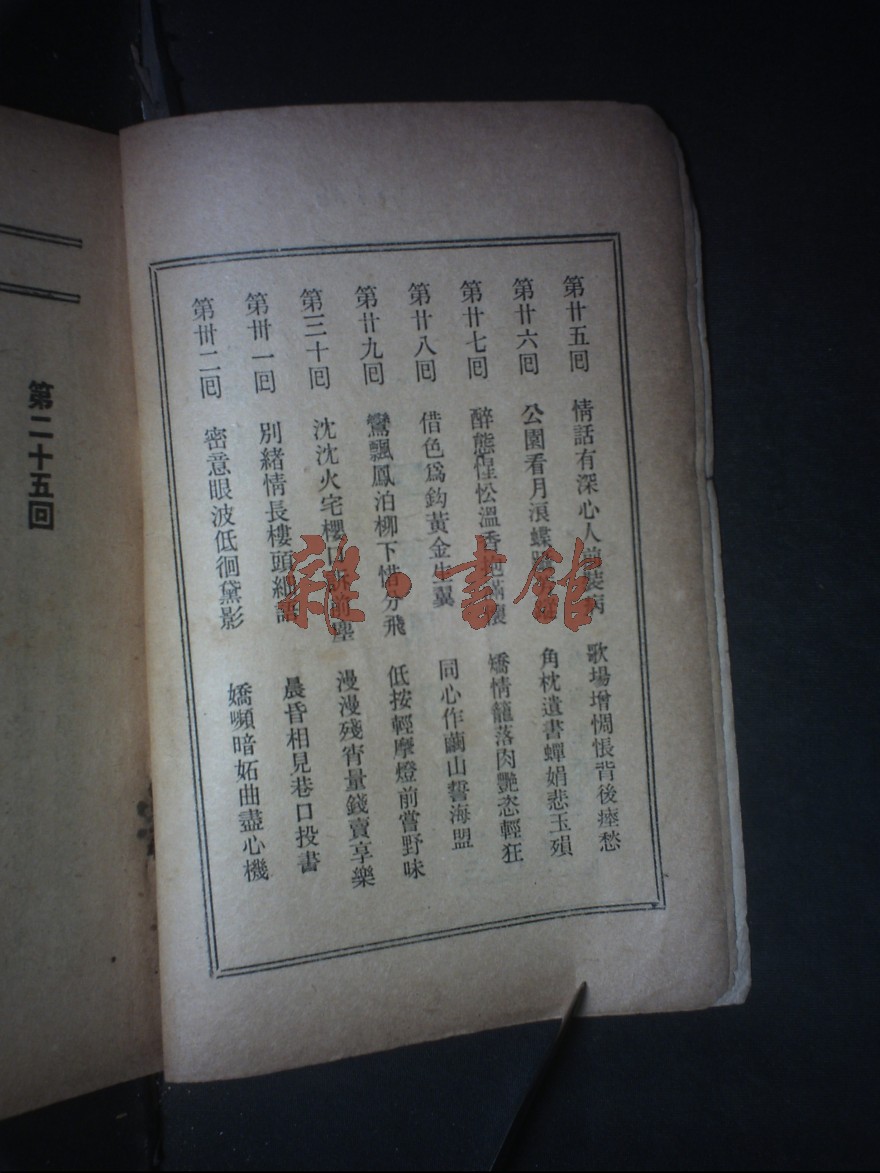 第廿五囘 情話有深心人前裝病 歌場增惆悵背後瘞愁
第廿六囘 公園看月浪蝶 角枕遺書蟬娟悲玉殞
第廿七囘 醉態惺忪溫香抱滿懷 矯情籠落肉艷恣輕狂
第廿八囘 借色爲鈎黃金生翼 同心作繭山誓海盟
第廿九囘 鸞飄鳳泊柳下惜分飛 低按輕摩燈前嘗野味
第三十囘 沈沈火宅櫻口訴前塵 漫漫殘宵量錢賣享樂
第卅一囘 別緒情長樓頭細語 晨昏相見巷口投書
第卅二囘 密意眼波低徊黛影 嬌嚬暗妬曲盡心機
第二十五回
雜·書館